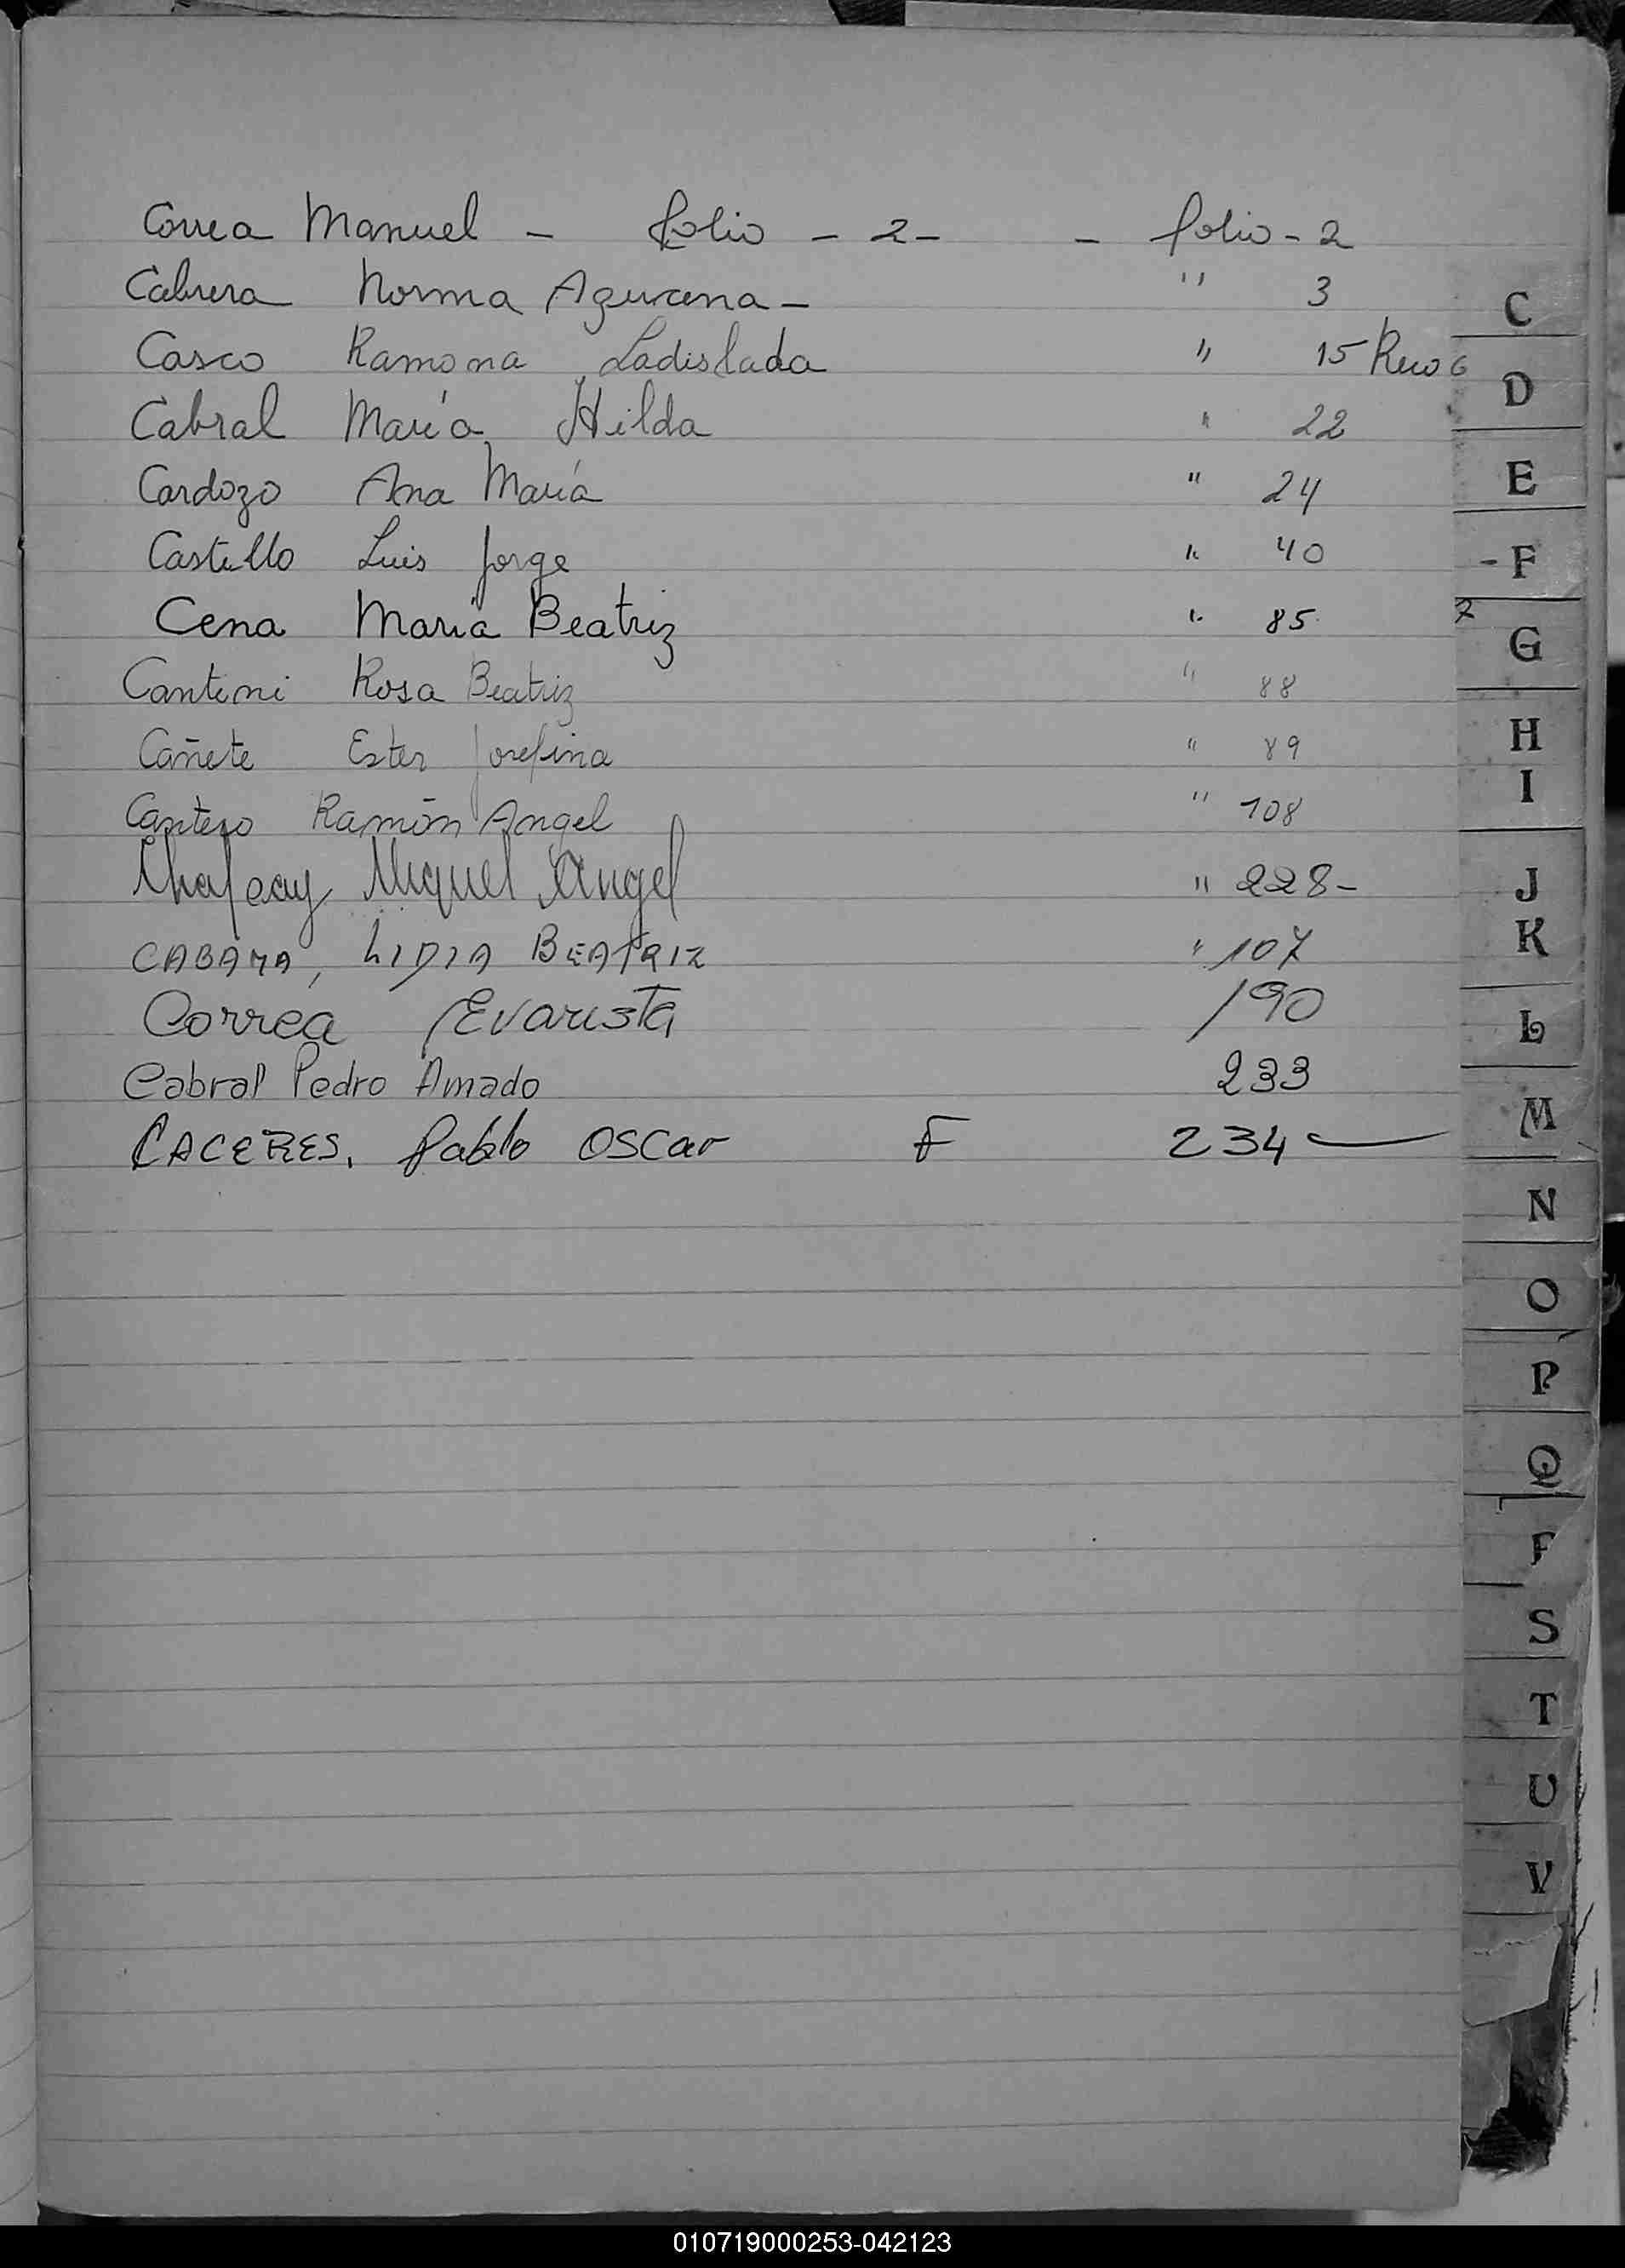 Correa Manuel - folio - 2 - - folio - 2
Cabrera Norma Azucena - " 3
Casco Ramona Ladislada " 15 Reco 6
Cabral María Hilda " 22
Cardozo Ana María " 24
Castillo Luis Jorge " 40
Cena María Beatriz " 85
Cantini Rosa Beatriz " 88
Cañete Ester Josefina " 89
Cantero Ramón Angel " 108
Miguel Angel " 228-
LIDIA BEATRIZ " 107
Correa Evarista 190
Cabral Pedro Amado 233
CACERES, Pablo OSCar F 234 —
C
D
E
- F
G
H
I
J
K
L
M
N
O
P
Q
S
T
U
V
010719000253-042123